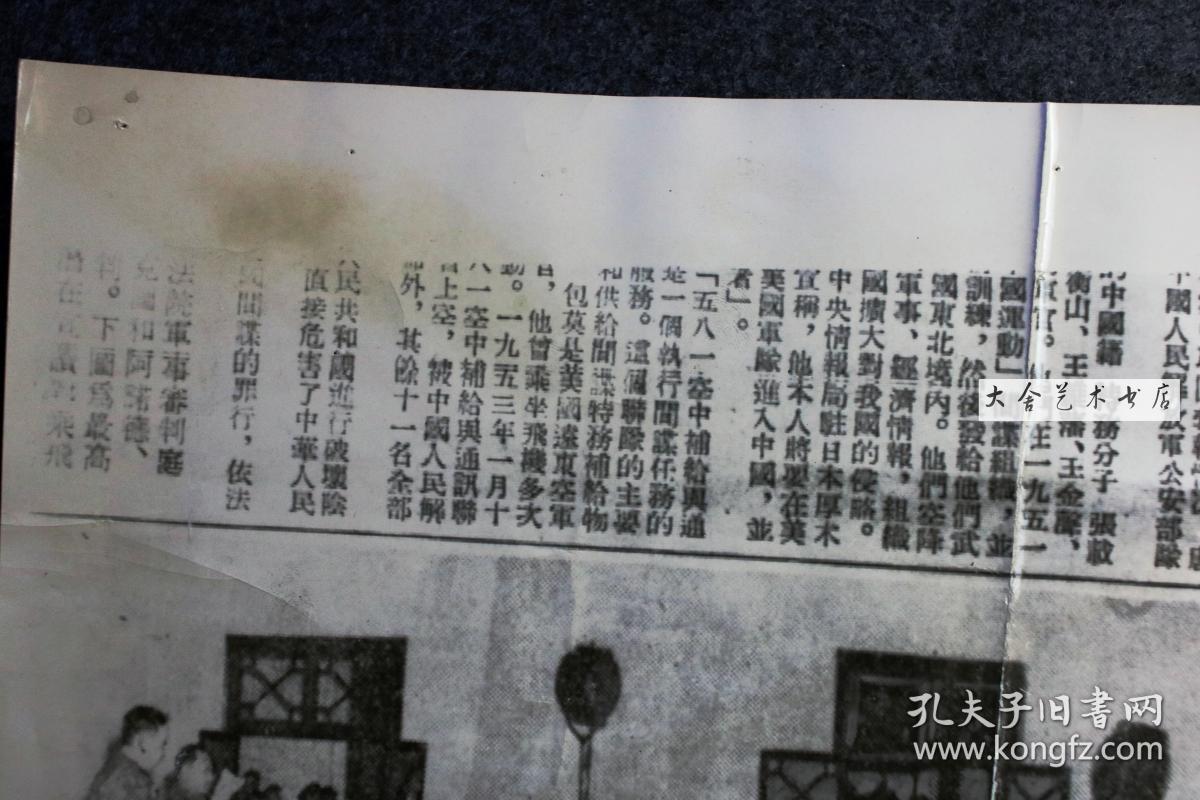 國人民
公安部隊
中國籍
務分子
張載
衡山、王
、王金
在一九五一
國運動」
諜組織，並
訓練，然後發給他們武
國東北境內。他們空降
軍事、經濟情報，組織
國擴大對我國的侵略。
中央情報局駐日本厚木
宣稱，他本人將要在美
美國軍隊進入中國，並
者」。
「五八一空中補給與通
是一個執行間諜任務的
服務。這個聯隊的主要
和供給間諜特務補給物
包莫是美國遠東空軍
官，他曾乘坐飛機多次
動。一九五三年一月十
八一空中補給與通訊聯
上空，被中國人民解
外，其餘十一名全部
人民共和國進行破壞陰
直接危害了中華人民
間諜的罪行，依法
法院軍事審判庭
克圖和阿諾德、
判。下圖爲最高
大舍艺术书店
孔夫子旧書网
www.kongfz.com